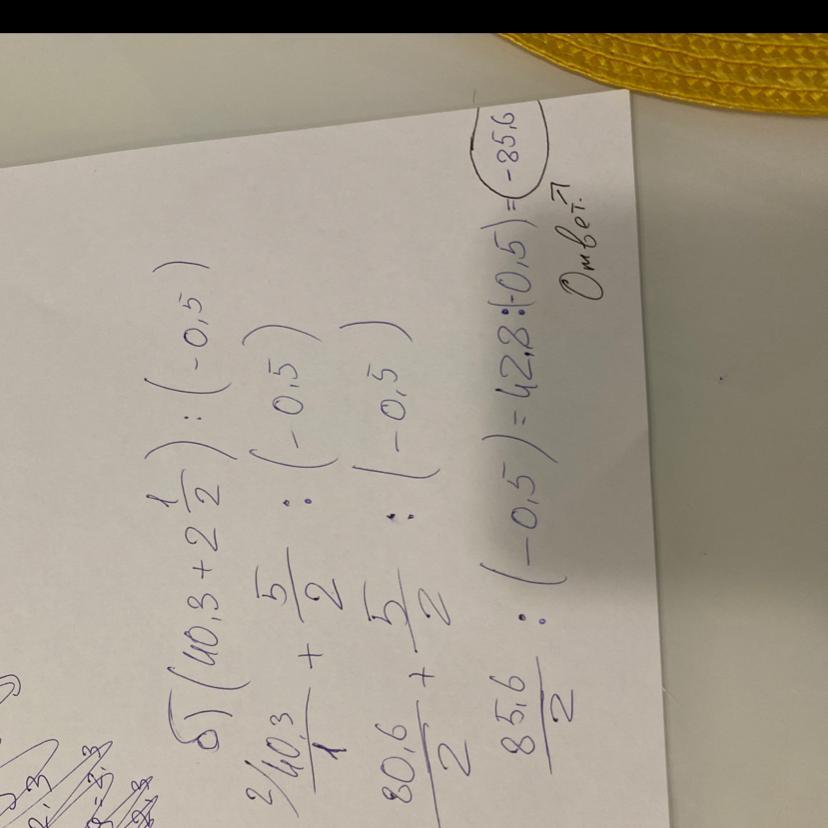 б) (40,3 + 2 1/2) : (-0,5)
2/ 40,3/1 + 5/2 : (-0,5)
80,6/2 + 5/2 : (-0,5)
85,6/2 : (-0,5) = 42,8:(-0,5) = -85,6
Ответ.